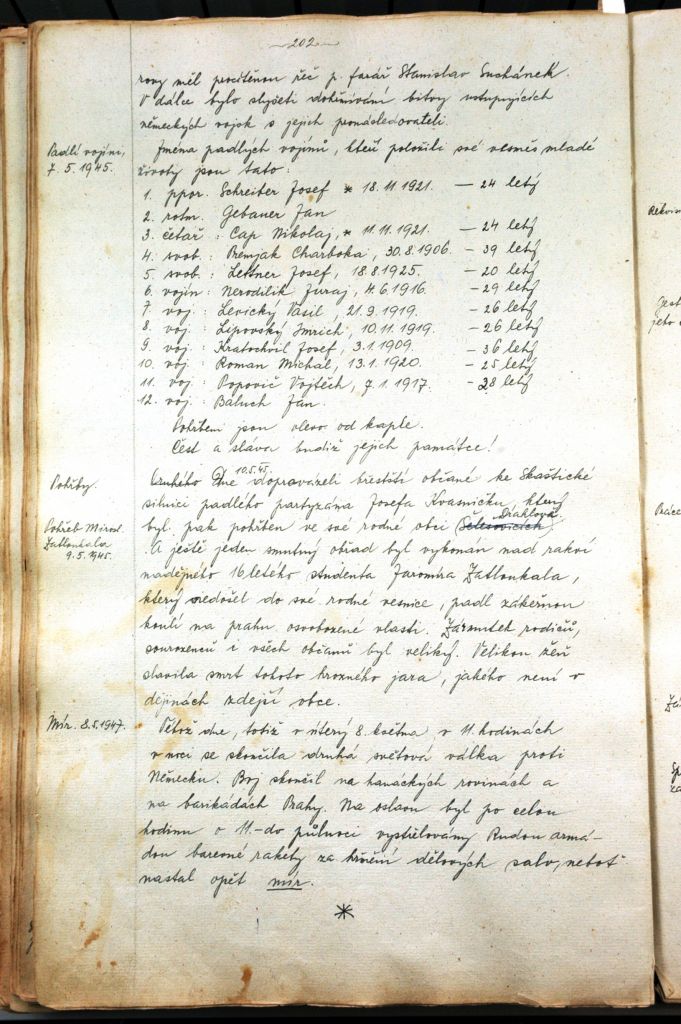 202
rovy měl procítěnou řeč p. farář Stanislav Suchánek.
V dálce bylo slyšeti dohřmívání bitvy ustupujících
německých vojsk s jejich pronásledovateli.
Padlí vojíni,
7. 5. 1945.
Jména padlých vojínů, kteří položili své vesměs mladé
životy jsou tato:
1. ppor. Schreiber Josef * 18. 11 1921. — 24 letý
2. rotm. Gebauer Jan
3. četař : Cap Nikolaj, * 11. 11. 1921. — 24 letý
4. svob. : Remjak Charboka, 30. 8. 1906. — 39 letý
5. svob. : Lettner Josef, 18. 8 1925. — 20 letý
6. vojín : Nerodilik Juraj, 4. 6. 1916. — 29 letý
7. voj. : Levický Vasil, 21. 9. 1919. — 26 letý
8. voj. : Lipovský Imrich, 10. 11. 1919. — 26 letý
9. voj. : Kratochvíl Josef, 3. 1. 1909. — 36 letý
10. voj. : Roman Michal, 13. 1. 1920. — 25 letý
11. voj. : Popovič Vojtěch, 7. 1. 1917. — 28 letý
12. voj. : Baluch Jan.
Pohřbeni jsou vlevo od kaple.
Čest a sláva budiž jejich památce!
Pohřby.
10. 5. 45.
Druhého dne doprovázeli břestští občané ke Skaštické
silnici padlého partyzána Josefa Kvasničku, který
byl pak pohřben ve své rodné obci Šelešovicích. Drahlov
Pohřeb Mirosl.
Zatloukala
9. 5. 1945.
A ještě jeden smutný obřad byl vykonán nad rakví
nadějného 16letého studenta Jaromíra Zatloukala,
který nedošel do své rodné vesnice, padl zákeřnou
koulí na prahu osvobozené vlasti. Zármutek rodičů,
sourozenců i všech občanů byl veliký. Velikou žeň
slavila smrt tohoto hrozného jara, jakého není v
dějinách zdejší obce.
Mír. 8. 5. 1947.
Téhož dne, totiž v úterý 8. května v 11. hodinách
v noci se skončila druhá světová válka proti
Německu. Boj skončil na hanáckých rovinách a
na barikádách Prahy. Na oslavu byl po celou
hodinu o 11.-do půlnoci vystřelovány Rudou armá-
dou barevné rakety za hřmění dělových salv, neboť
nastal opět mír.